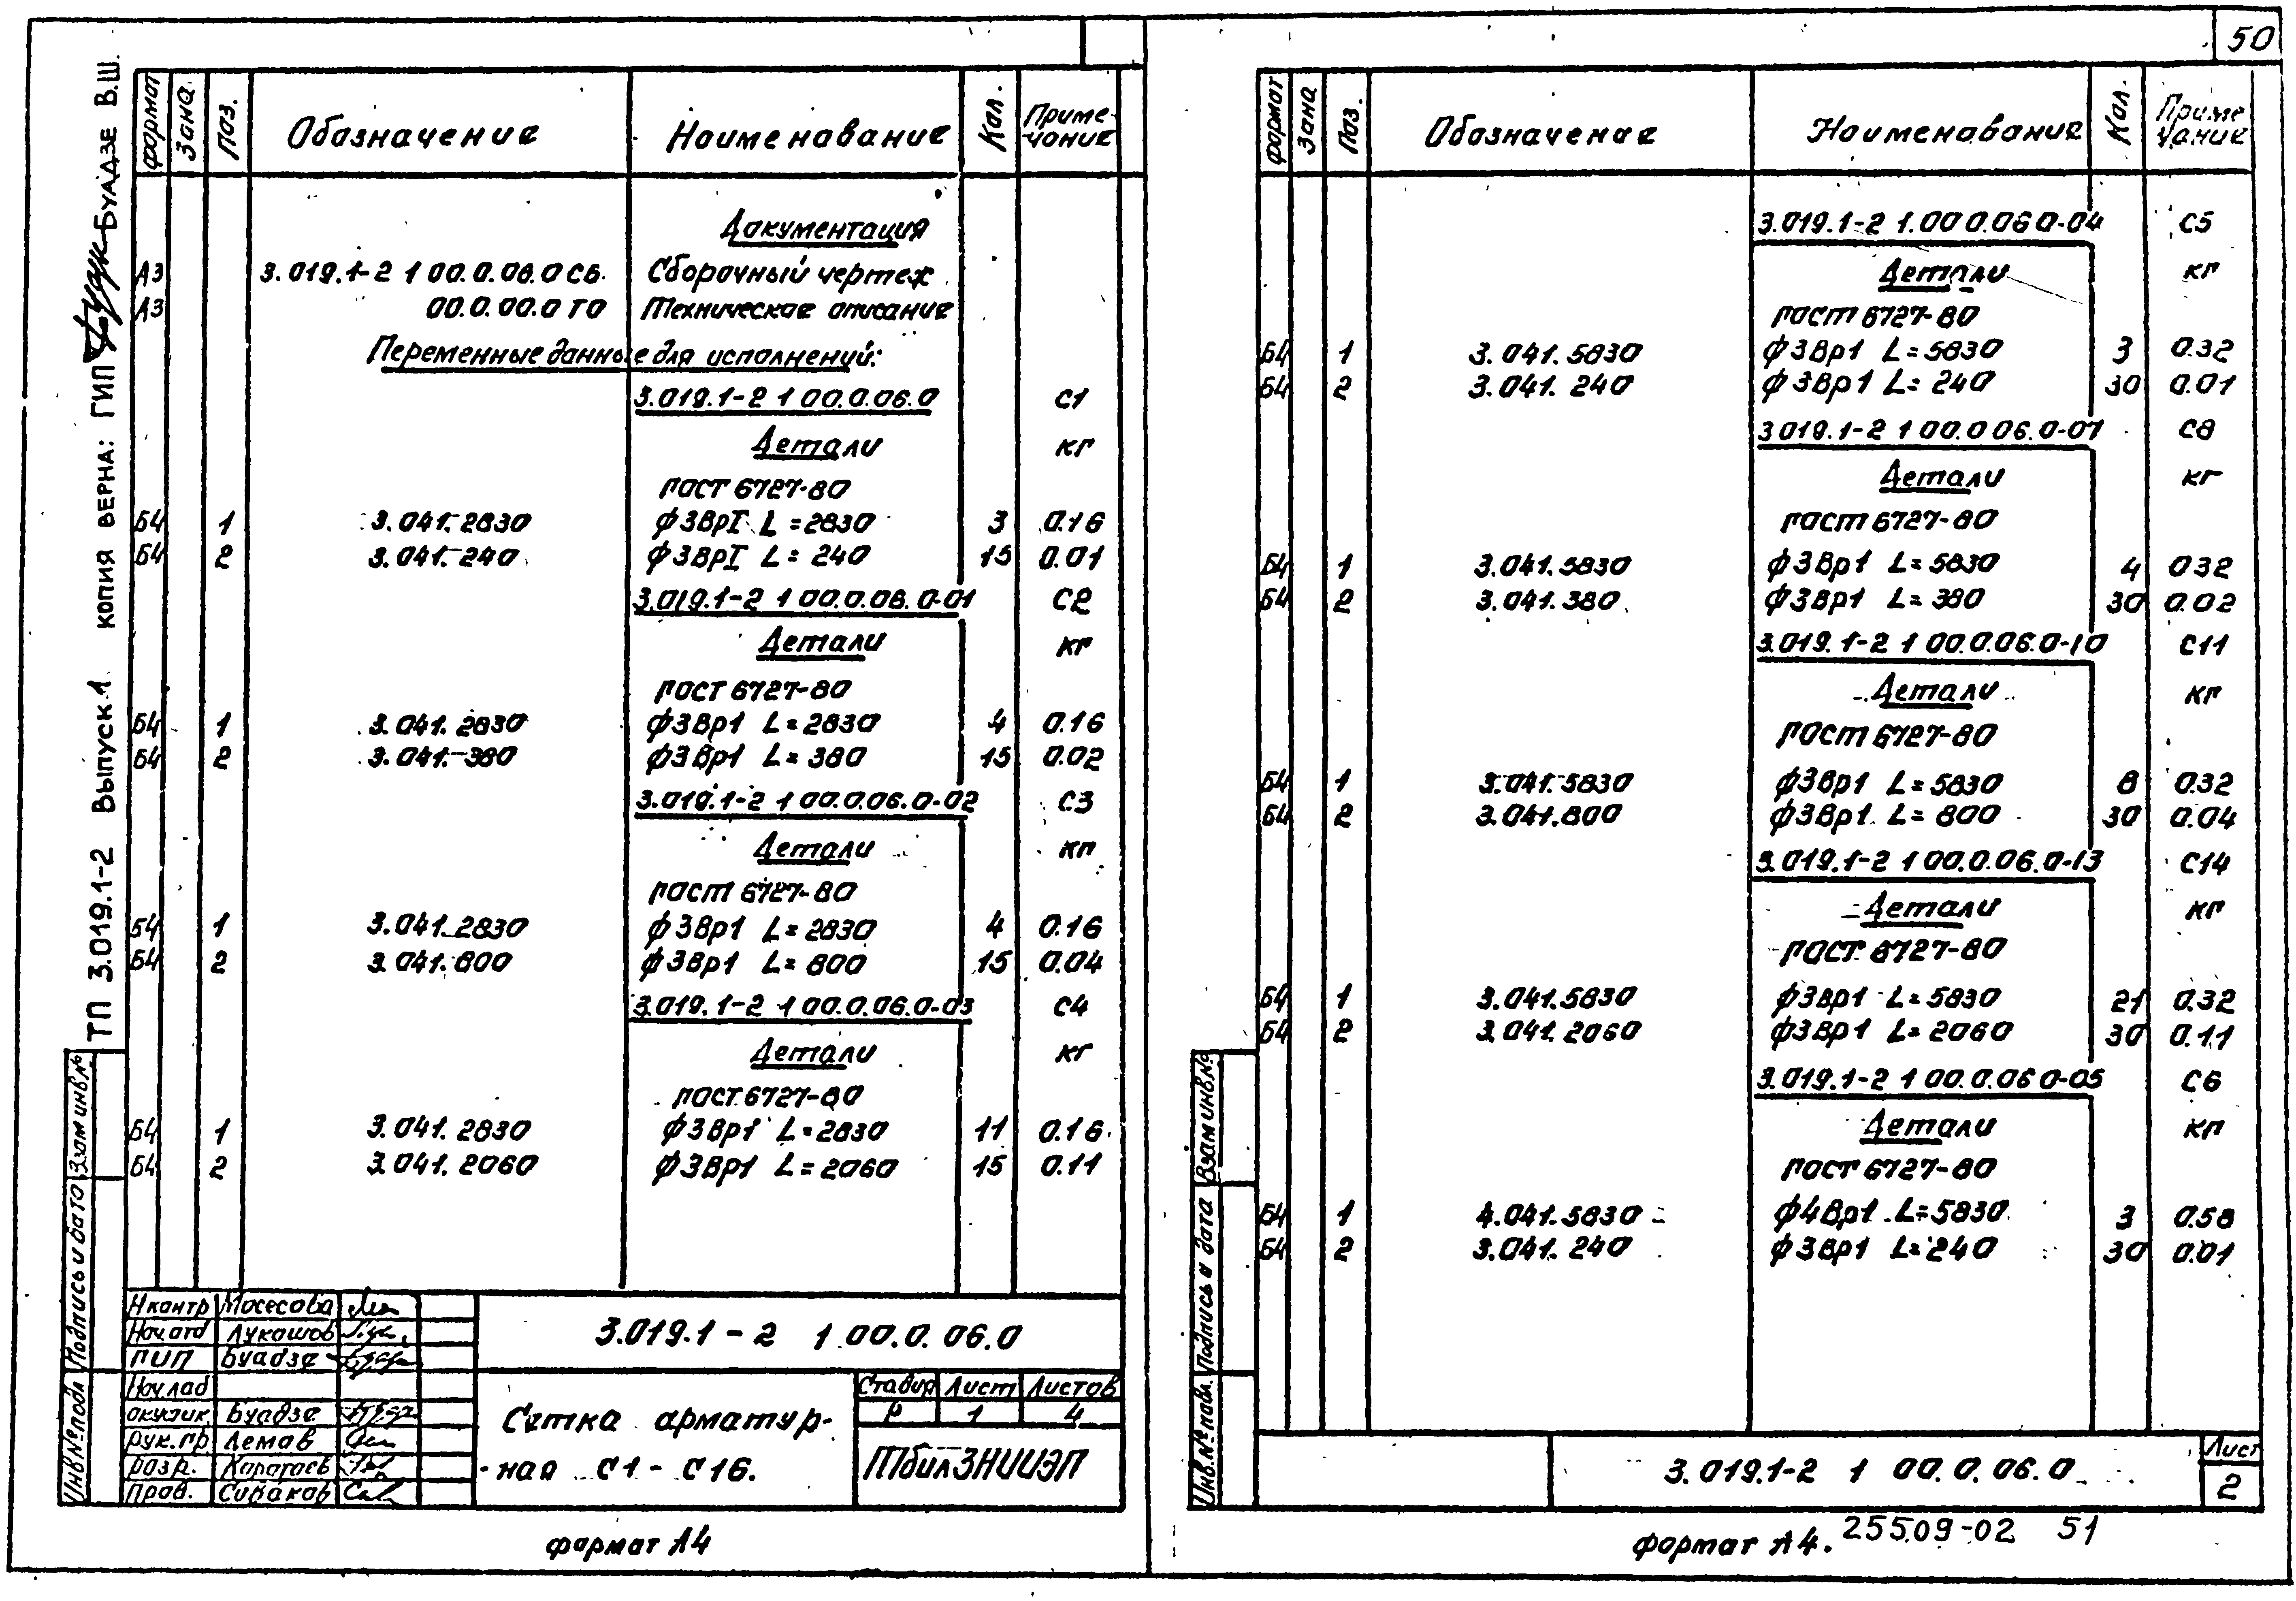 50
ТП 3.019.1-2 Выпуск 1 КОПИЯ ВЕРНА: ГИП БУАДЗЕ В.Ш.
Формат Зона Поз. Обозначение Наименование Кол. Приме-чание
Документация
А3 3.019.1-2 1 00.0.06.0 СБ. Сборочный чертеж
А3 00.0.00.0 ТО Техническое описание
Переменные данные для исполнений:
3.019.1-2 1 00.0.06.0 С1
Детали кг
ГОСТ 6727-80
Б4 1 3.041.2830 ф3ВрI L=2830 3 0.16
Б4 2 3.041.240 ф3ВрI L=240 15 0.01
3.019.1-2 1 00.0.06.0-01 С2
Детали кг
ГОСТ 6727-80
Б4 1 3.041.2830 ф3Вр1 L=2830 4 0.16
Б4 2 3.041.380 ф3Вр1 L=380 15 0.02
3.019.1-2 1 00.0.06.0-02 С3
Детали кг
ГОСТ 6727-80
Б4 1 3.041.2830 ф3Вр1 L=2830 4 0.16
Б4 2 3.041.800 ф3Вр1 L=800 15 0.04
3.019.1-2 1 00.0.06.0-03 С4
Детали кг
ГОСТ 6727-80
Б4 1 3.041.2830 ф3Вр1 L=2830 11 0.16
Б4 2 3.041.2060 ф3Вр1 L=2060 15 0.11
Инв№подл Подпись и дата Взам инв.№
Н контр Мосесова
Нач.отд Лукашов
ГИП Буадзе
Нач.лаб
Буадзе
рук.гр Лемав
разр. Каратаев
Пров. Сиваков
3.019.1-2 1 00.0.06.0
Сетка арматур-
ная С1-С16.
Стадия Лист Листов
Р 1 4
ТбилЗНИИЭП
формат А4
Формат Зона Поз. Обозначение Наименование Кол. Приме чание
3.019.1-2 1.00 0.06 0-04 С5
Детали кг
ГОСТ 6727-80
Б4 1 3.041.5830 ф3Вр1 L=5830 3 0.32
Б4 2 3.041.240 ф3Вр1 L=240 30 0.01
3.019.1-2 1 00.0 06.0-07 С8
Детали кг
ГОСТ 6727-80
Б4 1 3.041.5830 ф3Вр1 L=5830 4 0.32
Б4 2 3.041.380 ф3Вр1 L=380 30 0.02
3.019.1-2 1 00.0.06.0-10 С11
Детали кг
ГОСТ 6727-80
Б4 1 3.041.5830 ф3Вр1 L=5830 8 0.32
Б4 2 3.041.800 ф3Вр1 L=800 30 0.04
3.019.1-2 1 00.0.06.0-13 С14
Детали кг
ГОСТ 6727-80
Б4 1 3.041.5830 ф3Вр1 L=5830 21 0.32
Б4 2 3.041.2060 ф3Вр1 L=2060 30 0.11
3.019.1-2 1 00.0.06 0-05 С6
Детали кг
ГОСТ 6727-80
Б4 1 4.041.5830 ф4Вр1 L=5830 3 0.58
Б4 2 3.041.240 ф3Вр1 L=240 30 0.01
Инв.№подл. Подпись и дата Взам инв.№
3.019.1-2 1 00.0.06.0
Лист
2
формат А4. 25509-02 51